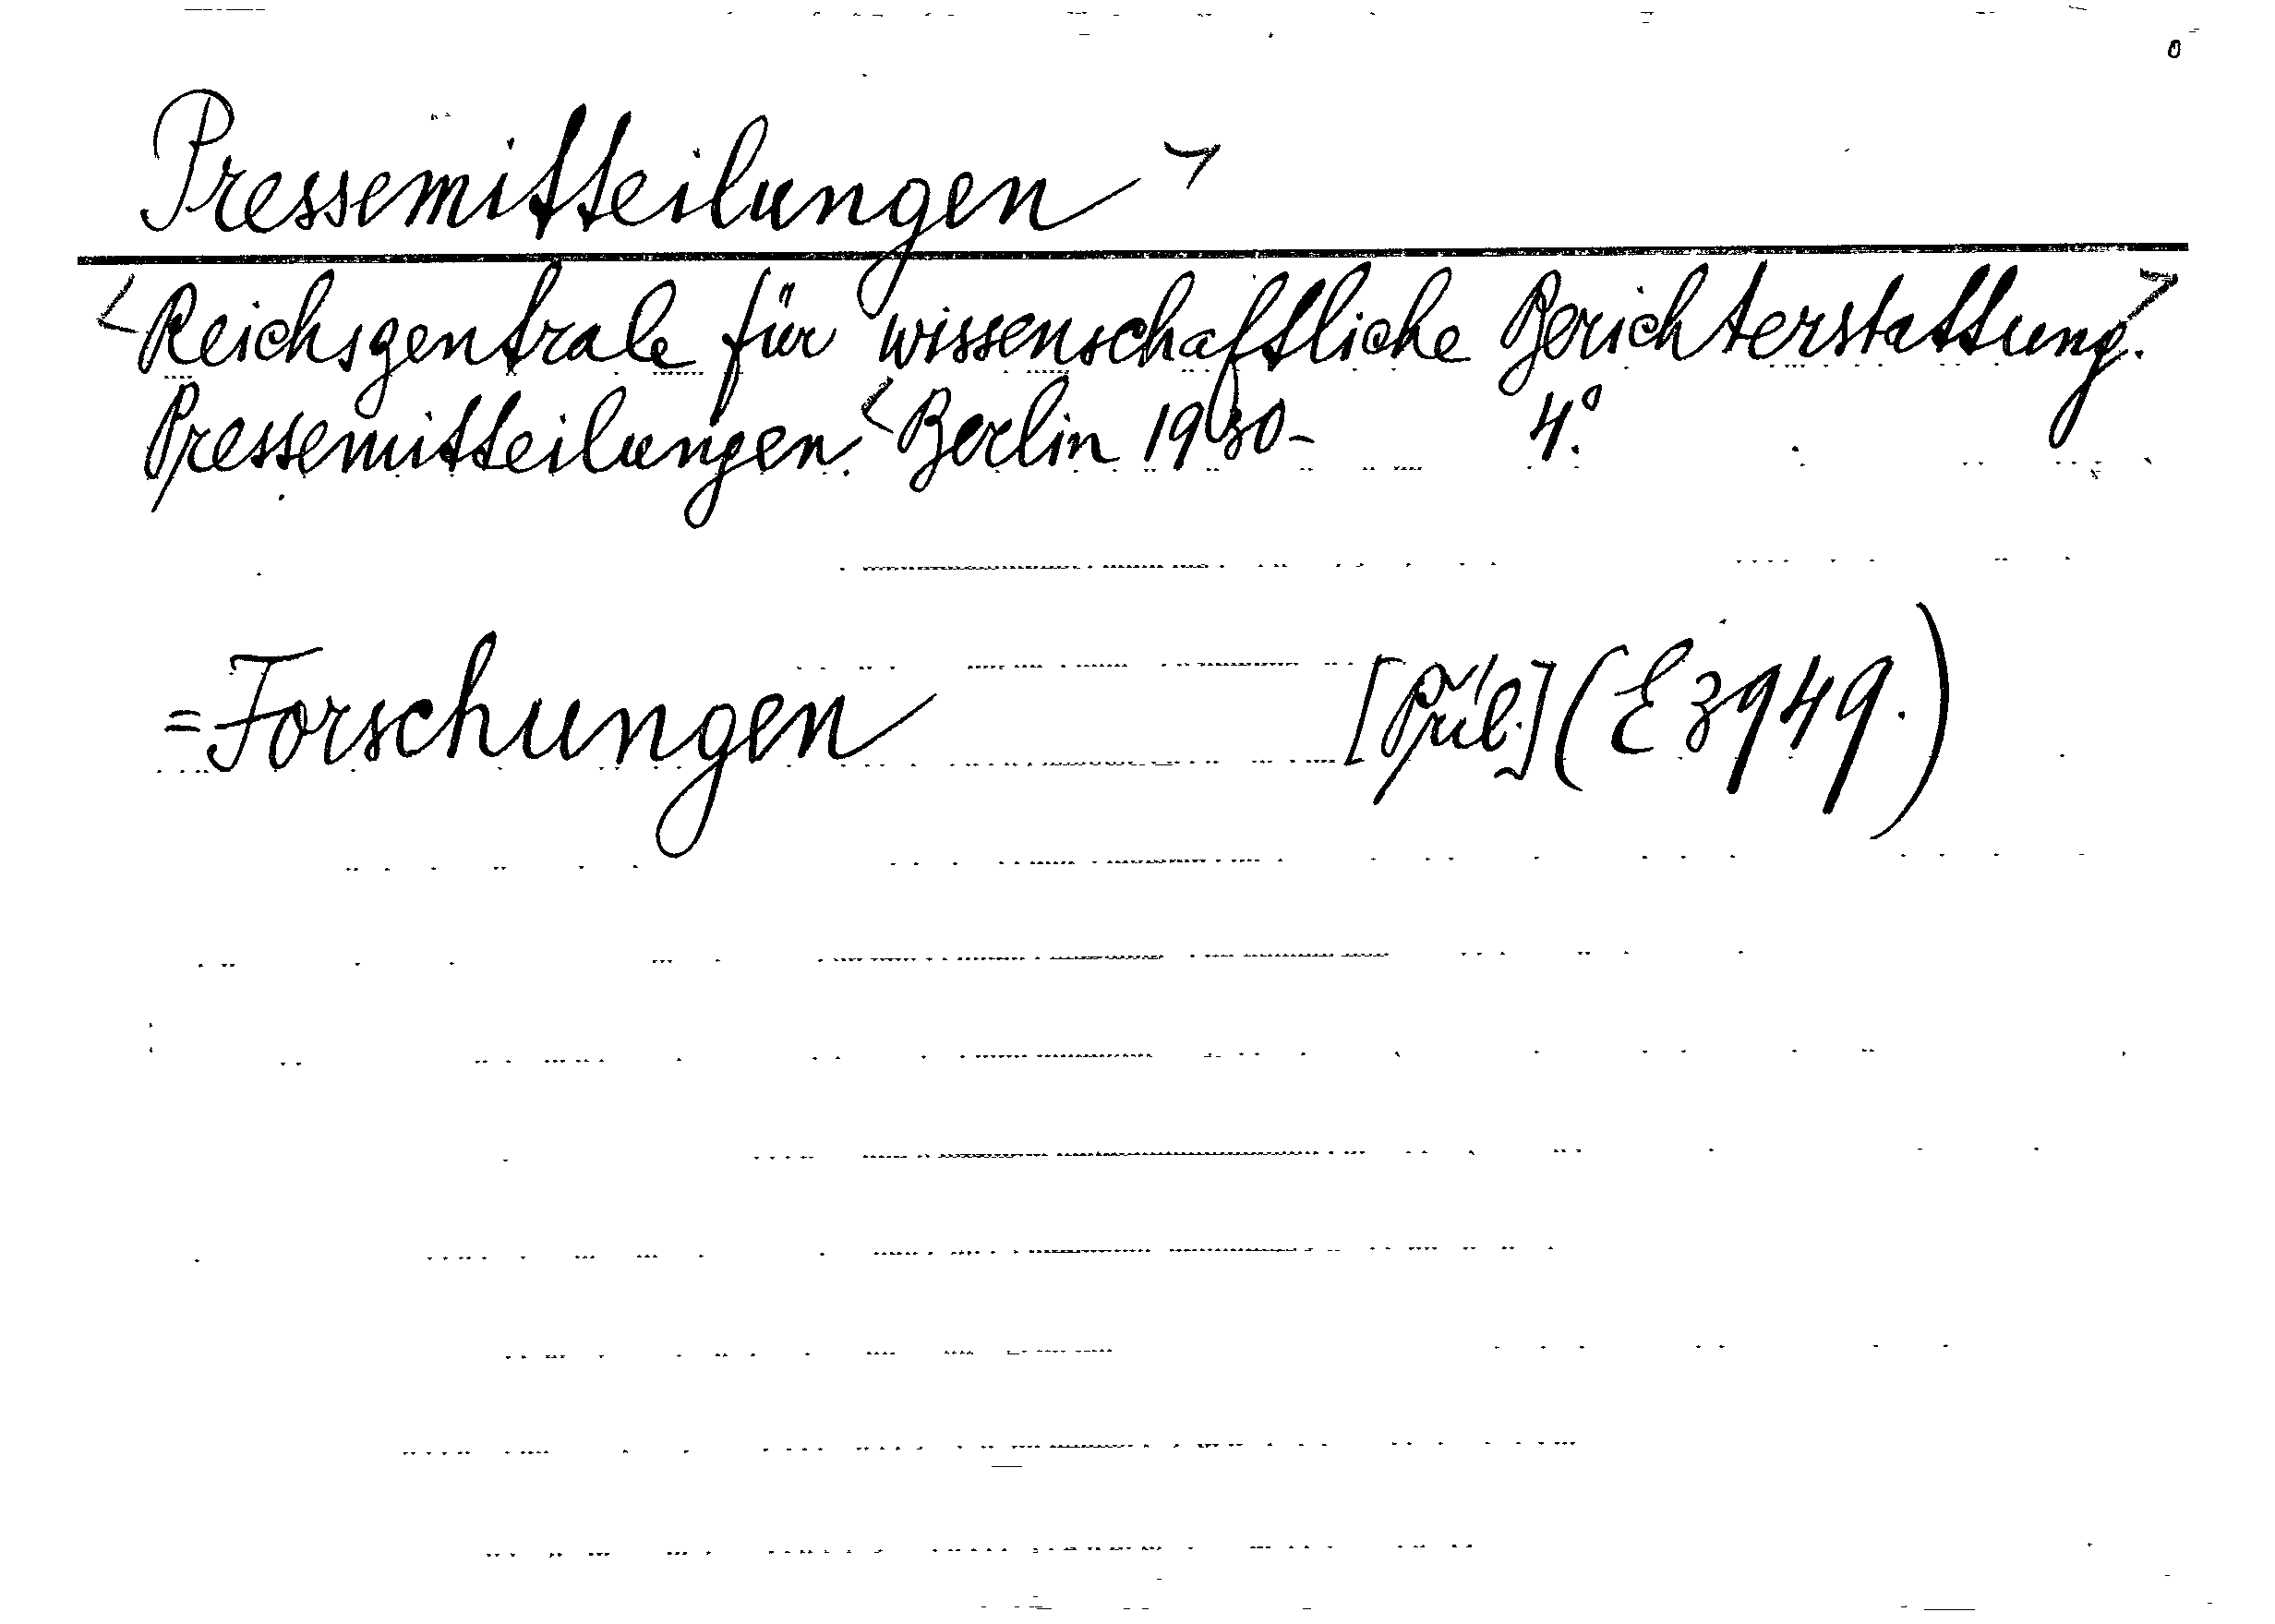 Pressemitteilungen >
<Reichszentrale für wissenschaftliche Berichterstattung.>
Pressemitteilungen.< Berlin 1930- 4°.
=Forschungen (E 3949.)